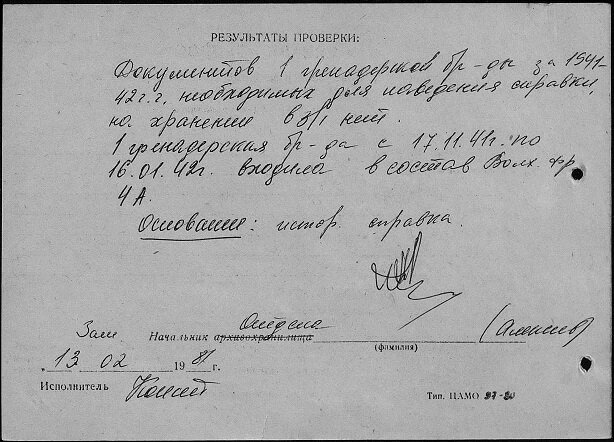 РЕЗУЛЬТАТЫ ПРОВЕРКИ:
Документов 1 гренадерской бр-ды за 1941-
42 г.г, необходимых для наведения справки,
на хранении в а/х нет.
1 гренадерская бр-да с 17.11.41г. по
16.01.42г. входила в состав Волх. фр
4 А.
Основание: истор. справка.
Зам. Начальник архивохранилища отдела
(фамилия)
" 13 " 02 1981 г.
Исполнитель
Тип. ЦАМО